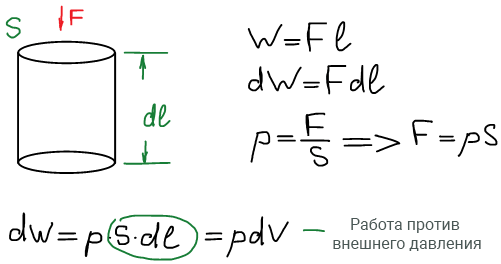 S
F
dl
W = Fl
dW = Fdl
p = F/S => F = pS
dW = p·S·dl = pdV — Работа против
внешнего давления